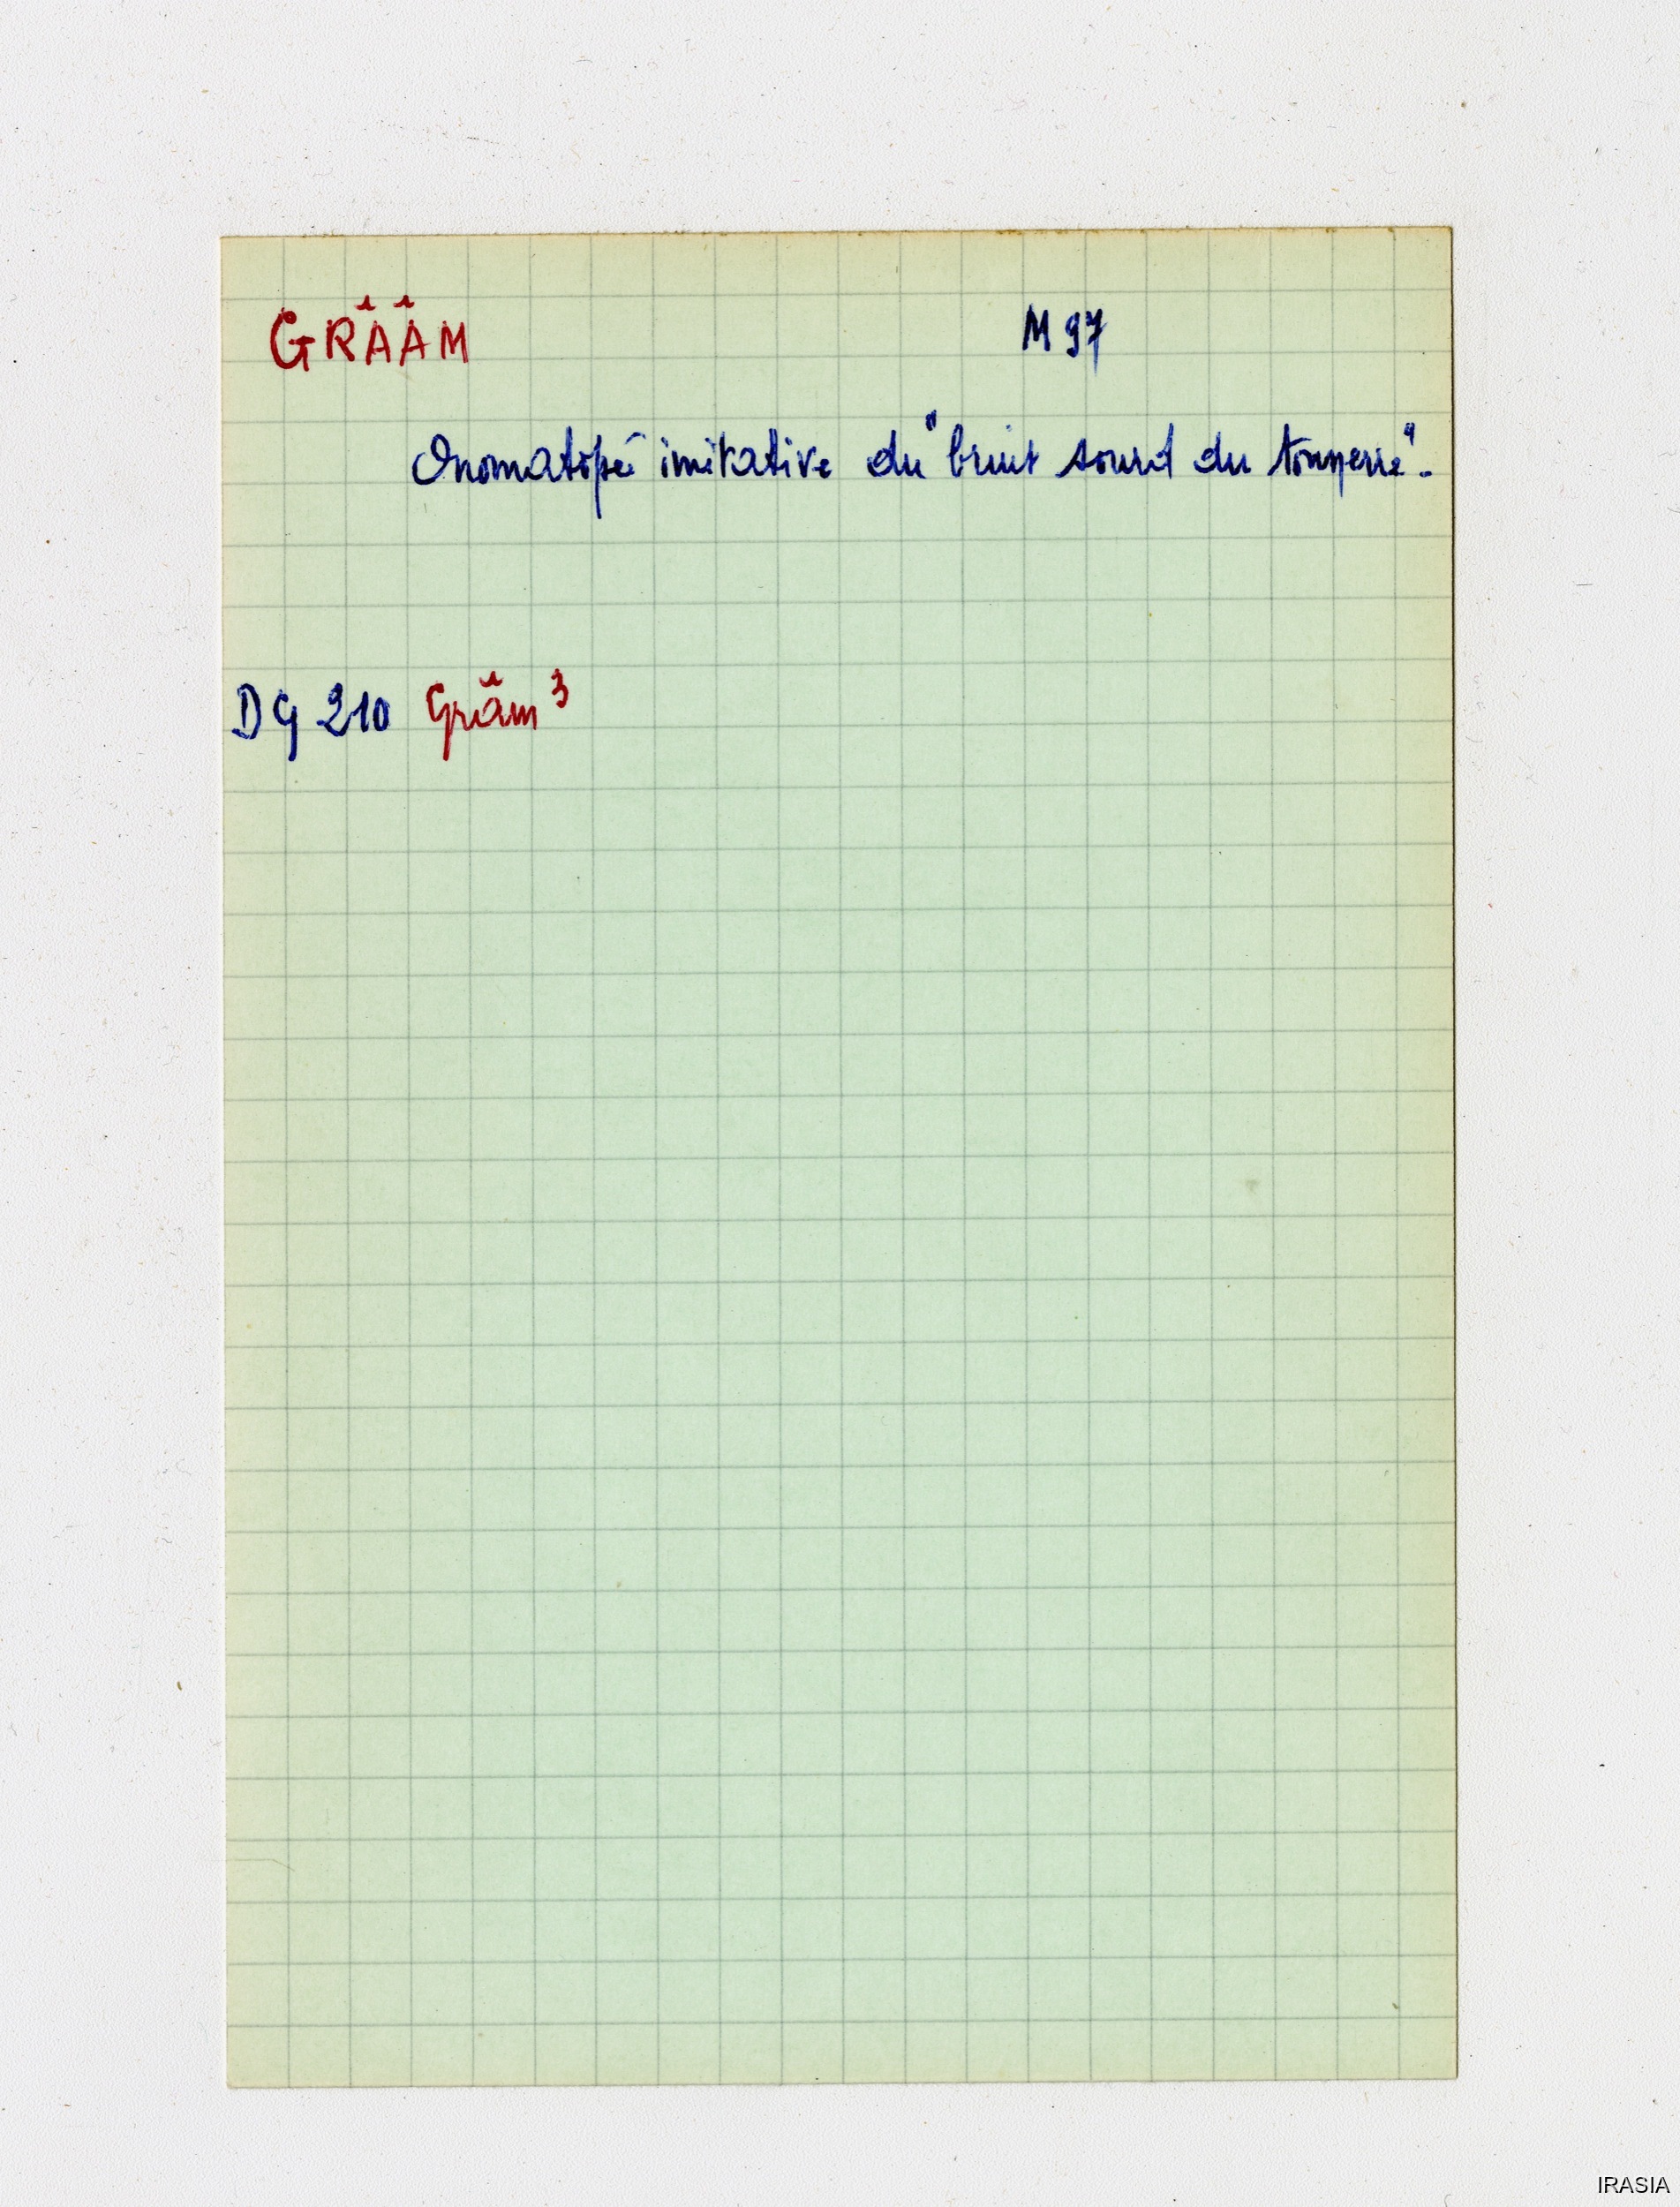 GRÂÂM M 97
Onomatopé imitative du "bruit sourd du tonnerre".
DG 210 Grâm³
IRASIA